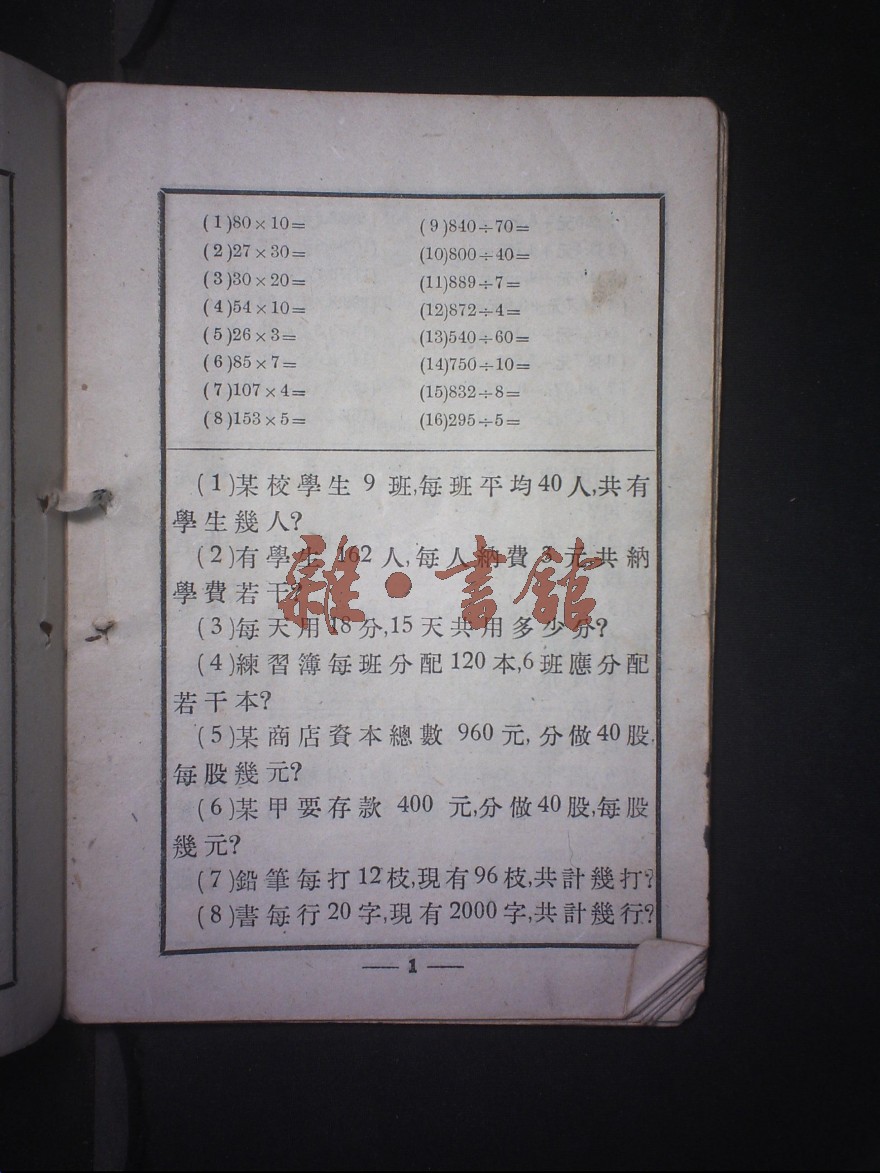 (1)80×10=
(2)27×30=
(3)30×20=
(4)54×10=
(5)26×3=
(6)85×7=
(7)107×4=
(8)153×5=
(9)840÷70=
(10)800÷40=
(11)889÷7=
(12)872÷4=
(13)540÷60=
(14)750÷10=
(15)832÷8=
(16)295÷5=
(1)某校學生9班,每班平均40人,共有
學生幾人?
(2)有學生162人,每人納費3元共納
學費若干?
(3)每天用18分,15天共用多少分?
(4)練習簿每班分配120本,6班應分配
若干本?
(5)某商店資本總數960元,分做40股.
每股幾元?
(6)某甲要存款400元,分做40股,每股
幾元?
(7)鉛筆每打12枝,現有96枝,共計幾打?
(8)書每行20字,現有2000字,共計幾行?
雜·書館
— 1 —